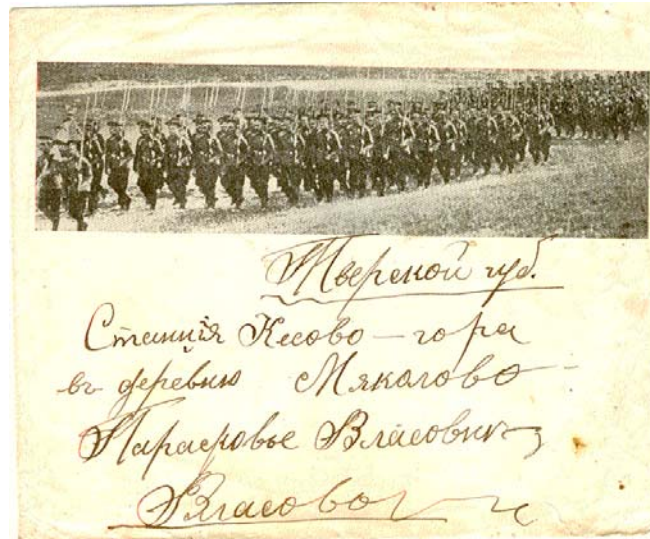 Тверской губ.
Станція Кесово-гора
въ деревню Мяколово
Парасковье Власовн
Власовой